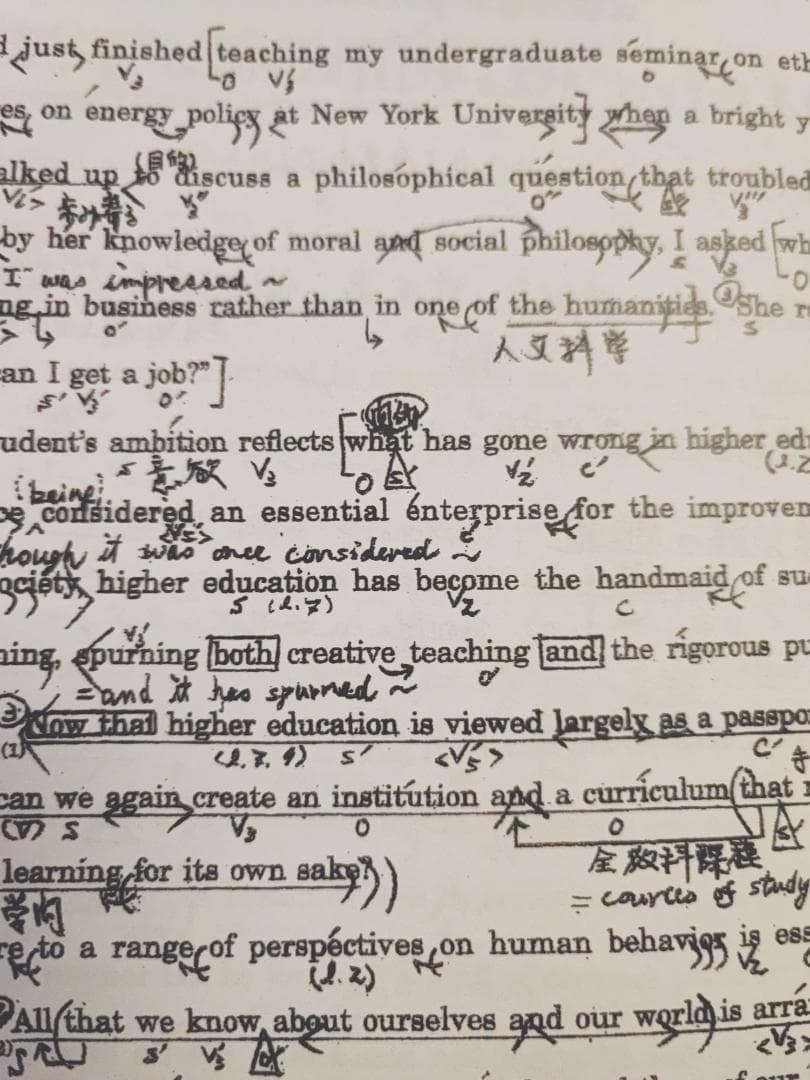 just finished [teaching my undergraduate seminar on eth
V3 O V3' O
es on energy policy at New York University] when a bright y
(目的)
alked up to discuss a philosophical question (that troubled
V3'' O'' V3'''
by her knowledge of moral and social philosophy, I asked [wh
S V3 O
I was impressed ~
ng in business rather than in one of the humanities.] ③She r
O' S
人文科学
an I get a job?"]
S' V3' O'
udent's ambition reflects [what has gone wrong in higher edu
S V3 O S' V2' C'
(being)
considered an essential enterprise for the improvem
<V5> C'
hough it was once considered ~
ociety, higher education has become the handmaid of su
S (l.7) V2 C
V3'
ning, spurning both creative teaching and the rigorous pu
O'
= and it has spurned ~
③ Now that higher education is viewed largely as a passpo
(1) (l.7, 9) S' <V5'> C'
can we again create an institution and a curriculum (that
(V) S V3 O O S'
全教科課程
learning for its own sake?))
学問 = cources of study
re to a range of perspectives on human behavior is ess
(l.2) V2
All (that we know about ourselves and our world) is arra
S S' V3' O' <V3>